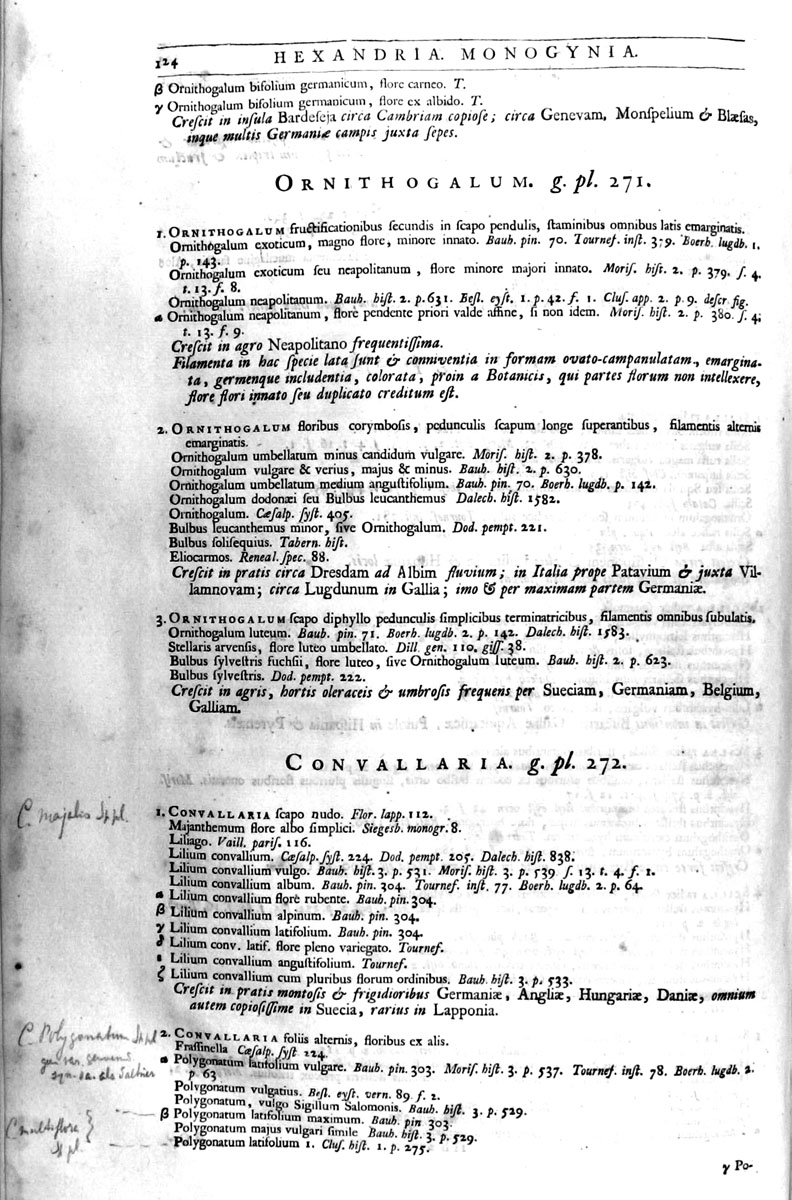 124 HEXANDRIA. MONOGYNIA.
β Ornithogalum bifolium germanicum, flore carneo. T.
γ Ornithogalum bifolium germanicum, flore ex albido. T.
Creſcit in inſula Bardeſeja circa Cambriam copioſe; circa Genevam, Monſpelium & Blæſas,
inque multis Germaniæ campis juxta ſepes.
ORNITHOGALUM. g. pl. 271.
1. ORNITHOGALUM fructificationibus ſecundis in ſcapo pendulis, ſtaminibus omnibus latis emarginatis.
Ornithogalum exoticum, magno flore, minore innato. Bauh. pin. 70. Tournef. inſt. 379. Boerh. lugdb. 1.
p. 143.
Ornithogalum exoticum ſeu neapolitanum, flore minore majori innato. Moriſ. hiſt. 2. p. 379. ſ. 4.
t. 13. f. 8.
Ornithogalum neapolitanum. Bauh. hiſt. 2. p. 631. Beſl. eyſt. 1. p. 42. f. 1. Cluſ. app. 2. p. 9. deſcr fig.
α Ornithogalum neapolitanum, flore pendente priori valde affine, ſi non idem. Moriſ. hiſt. 2. p. 380. ſ. 4;
t. 13. f. 9.
Creſcit in agro Neapolitano frequentiſſima.
Filamenta in hac ſpecie lata ſunt & conniventia in formam ovato-campanulatam, emargina-
ta, germenque includentia, colorata, proin a Botanicis, qui partes florum non intellexere,
flore flori innato ſeu duplicato creditum eſt.
2. ORNITHOGALUM floribus corymboſis, pedunculis ſcapum longe ſuperantibus, filamentis alternis
emarginatis.
Ornithogalum umbellatum minus candidum vulgare. Moriſ. hiſt. 2. p. 378.
Ornithogalum vulgare & verius, majus & minus. Bauh. hiſt. 2. p. 630.
Ornithogalum umbellatum medium anguſtifolium. Bauh. pin. 70. Boerh. lugdb. p. 142.
Ornithogalum dodonæi ſeu Bulbus leucanthemus Dalech. hiſt. 1582.
Ornithogalum. Cæſalp. ſyſt. 405.
Bulbus leucanthemus minor, ſive Ornithogalum. Dod. pempt. 221.
Bulbus ſolifequius. Tabern. hiſt.
Eliocarmos. Reneal. ſpec. 88.
Creſcit in pratis circa Dresdam ad Albim fluvium; in Italia prope Patavium & juxta Vil-
lamnovam; circa Lugdunum in Gallia; imo & per maximam partem Germaniæ.
3. ORNITHOGALUM ſcapo diphyllo pedunculis ſimplicibus terminatricibus, filamentis omnibus ſubulatis.
Ornithogalum luteum. Bauh. pin. 71. Boerh. lugdb. 2. p. 142. Dalech. hiſt. 1583.
Stellaris arvenſis, flore luteo umbellato. Dill. gen. 110. giſſ. 38.
Bulbus ſylveſtris fuchſii, flore luteo, ſive Ornithogalum luteum. Bauh. hiſt. 2. p. 623.
Bulbus ſylveſtris. Dod. pempt. 222.
Creſcit in agris, hortis oleraceis & umbroſis frequens per Sueciam, Germaniam, Belgium,
Galliam.
CONVALLARIA. g. pl. 272.
C. majalis Sp pl.
1. CONVALLARIA ſcapo nudo. Flor. lapp. 112.
Majanthemum flore albo ſimplici. Siegesb. monogr. 8.
Liliago. Vaill. pariſ. 116.
Lilium convallium. Cæſalp. ſyſt. 224. Dod. pempt. 205. Dalech. hiſt. 838.
Lilium convallium vulgo. Bauh. hiſt. 3. p. 531. Moriſ. hiſt. 3. p. 539 ſ. 13. t. 4. f. 1.
Lilium convallium album. Bauh. pin. 304. Tournef. inſt. 77. Boerh. lugdb. 2. p. 64.
α Lilium convallium flore rubente. Bauh. pin. 304.
β Lilium convallium alpinum. Bauh. pin. 304.
γ Lilium convallium latifolium. Bauh. pin. 304.
δ Lilium conv. latif. flore pleno variegato. Tournef.
ε Lilium convallium anguſtifolium. Tournef.
ζ Lilium convallium cum pluribus florum ordinibus. Bauh. hiſt. 3. p. 533.
Creſcit in pratis montoſis & frigidioribus Germaniæ, Angliæ, Hungariæ, Daniæ, omnium
autem copioſiſſime in Suecia, rarius in Lapponia.
C. Polygonatum Sp pl
2. CONVALLARIA foliis alternis, floribus ex alis.
Fraſſinella Cæſalp. ſyſt 224.
α Polygonatum latifolium vulgare. Bauh. pin. 303. Moriſ. hiſt. 3. p. 537. Tournef. inſt. 78. Boerh. lugdb. 2.
p. 63
Polygonatum vulgatius. Beſl. eyſt. vern. 89. f. 2.
Polygonatum, vulgo Sigillum Salomonis. Bauh. hiſt. 3. p. 529.
C multiflora
Sp pl.
β Polygonatum latifolium maximum. Bauh. pin 303.
Polygonatum majus vulgari ſimile Bauh. hiſt. 3. p. 529.
Polygonatum latifolium 1. Cluſ. hiſt. 1. p. 275.
γ Po-